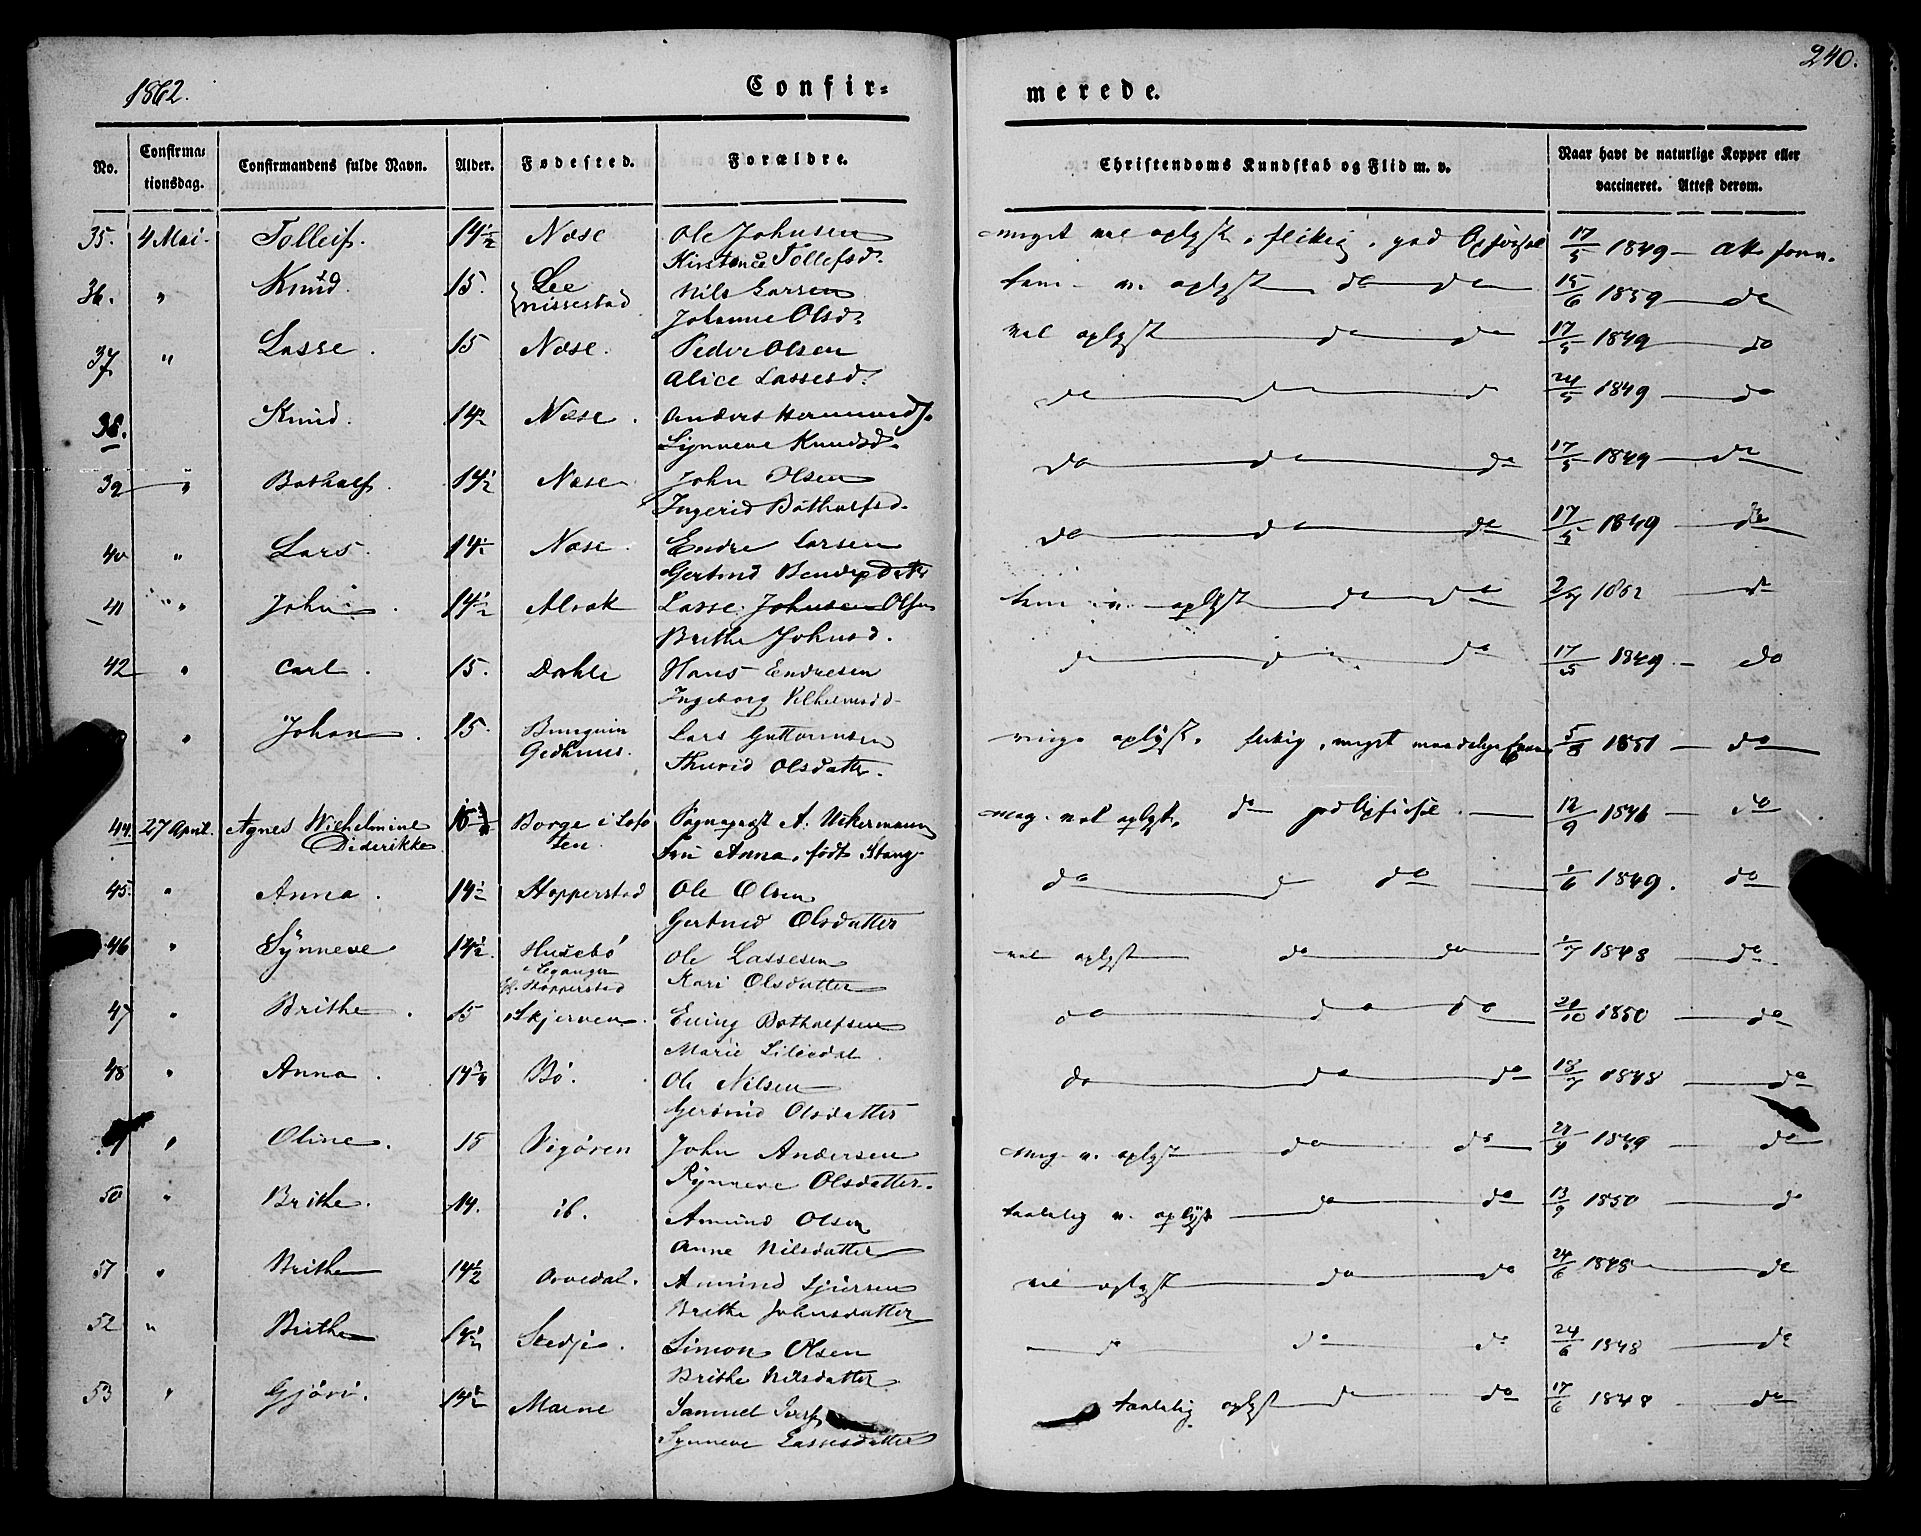 1862.
Confir=
merede.
240.
No.
Confirmationsdag.
Confirmandens fulde Navn.
Alder.
Fødested.
Forældre.
Christendoms Kundskab og Flid m. v.
Naar havt de naturlige Kopper eller
vaccineret. Attest derom.
35. 4 Mai. Tolleif. 14½ Næse Ole Johnsen meget vel oplyst, flittig, god Opførsel 17/5 1849
Tollefsd.
36. " Knud. 15. Lee Nils Larsen oplyst do do 15/6 1859 do
Nissestad Johanne Olsd.
37 " Lasse. 15 Næse. Peder Olsen vel oplyst do do 17/5 1849 do
Alice Lassesd.
38. Knud. 14½ Næse. Anders do do d 24/5 1849 do
Synneve Knudsd.
39 " Botholf. 14½ Næse John Olsen do do do 17/5 1849 do
Ingerid Botholfsd.
40 " Lars. 14½ Næse. Endre Larsen do do do 17/5 1849 do
Gertrud
41 " John. 14½ Alrak Lasse Johnsen Olsen oplyst do do 2/7 1862 do
Brithe Johnsd.
42 " Carl. 15. Dahle Hans Endresen d d do 17/5 1849. do
Ingeborg Vilhelmsd.
" Johan. 15. Lars Guttormsen oplyst, flittig, meget 5/8 1851 do
Gedhuus. Thurid Olsdatter.
44. 27 April. Agnes Wilhelmine Borge i Lofo Sogneprest A. Uchermann meg. vel oplyst, do god Opførsel 12/9 1846 do
Diderikke ten Fru Anna, født Stang
45. " Anna. 14½ Hopperstad Ole Olsen do d do 1/6 1849. do
Gertrud Olsdatter
46 " Synneve 14½. Husebø Ole Lassesen vel oplyst do do 1/7 1848 do
i Leganger Kari Olsdatter
Hopperstad
47 " Brithe. 15 Skjerven. Botholfsen do do do 21/10 1850 do
Marie
48 " Anna. 14¾ Bø. Ole Nilsen do do do 18/7 1848 do
Gertrud Olsdatter
" Oline. 15 Vigøren John Andersen meg. v. oplyst do do 21/9 1849 do
Synneve Olsdatter.
50 " Brithe. 14. ib. Amund Olsen taalelig v. oplyst do do 13/9 1850 do
Anne Nilsdatter
51 " Brithe 14½ Amund Sjursen vel oplyst do do 24/6 1848 do
Brithe Johnsdatter
52 " Brithe 14½ Stedje. Simon Olsen do do do 24/6 1848 do
Brithe Nilsdatter
53 " Gjøri. 14½ Marne Samuel taalelig oplyst do do 17/6 1848 do
Synneve Lassesdatter